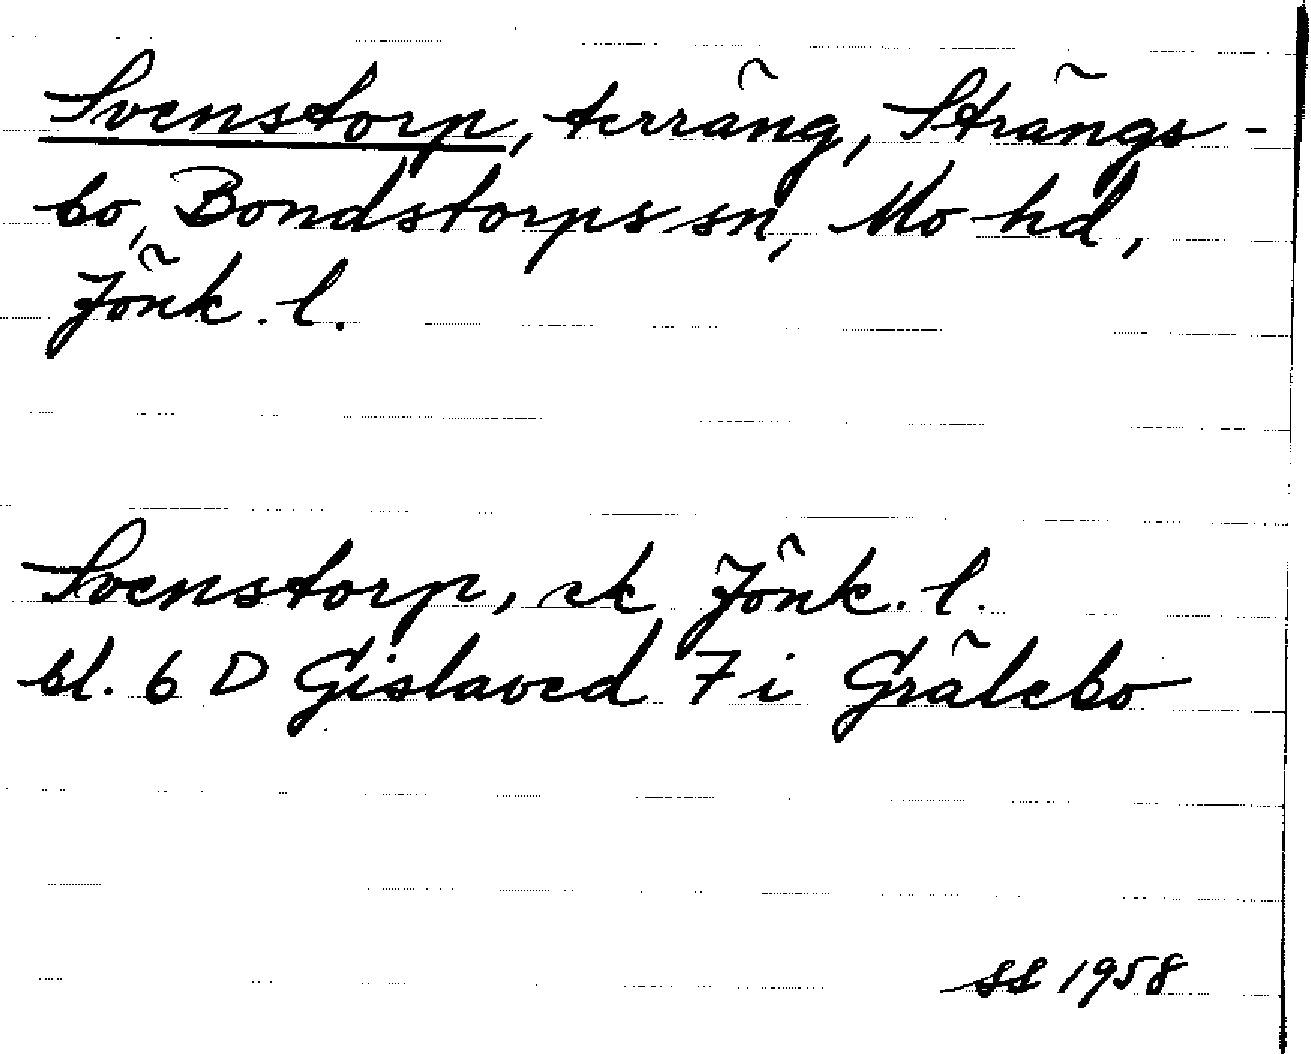 Svenstorp, terräng, Strängs-
bo, Bondstorps sn, Mo hd,
Jönk. l.
Svenstorp, ek Jönk. l.
bl. 6 D Gislaved 7 i Grälebo
SS 1958